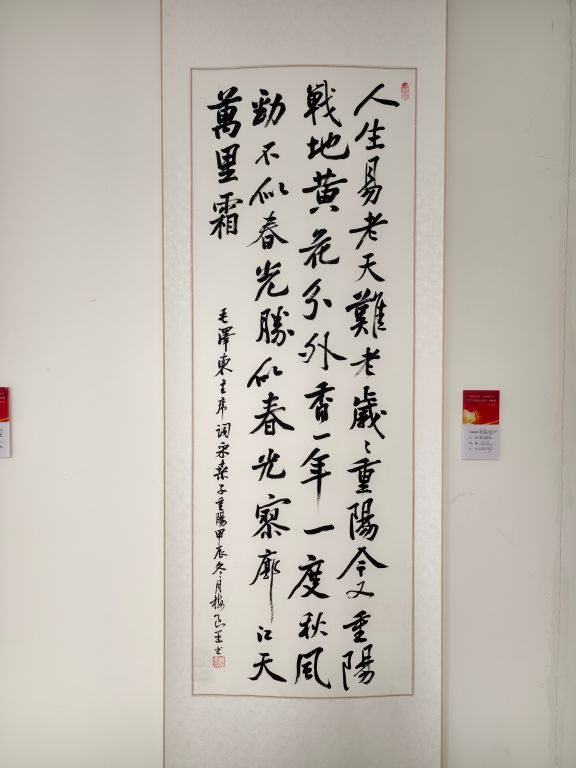 人生易老天難老歲々重陽今又重陽
戰地黃花分外香一年一度秋風
勁不似春光勝似春光寥廓江天
萬里霜
毛澤東主席詞采桑子重陽甲辰冬月梅